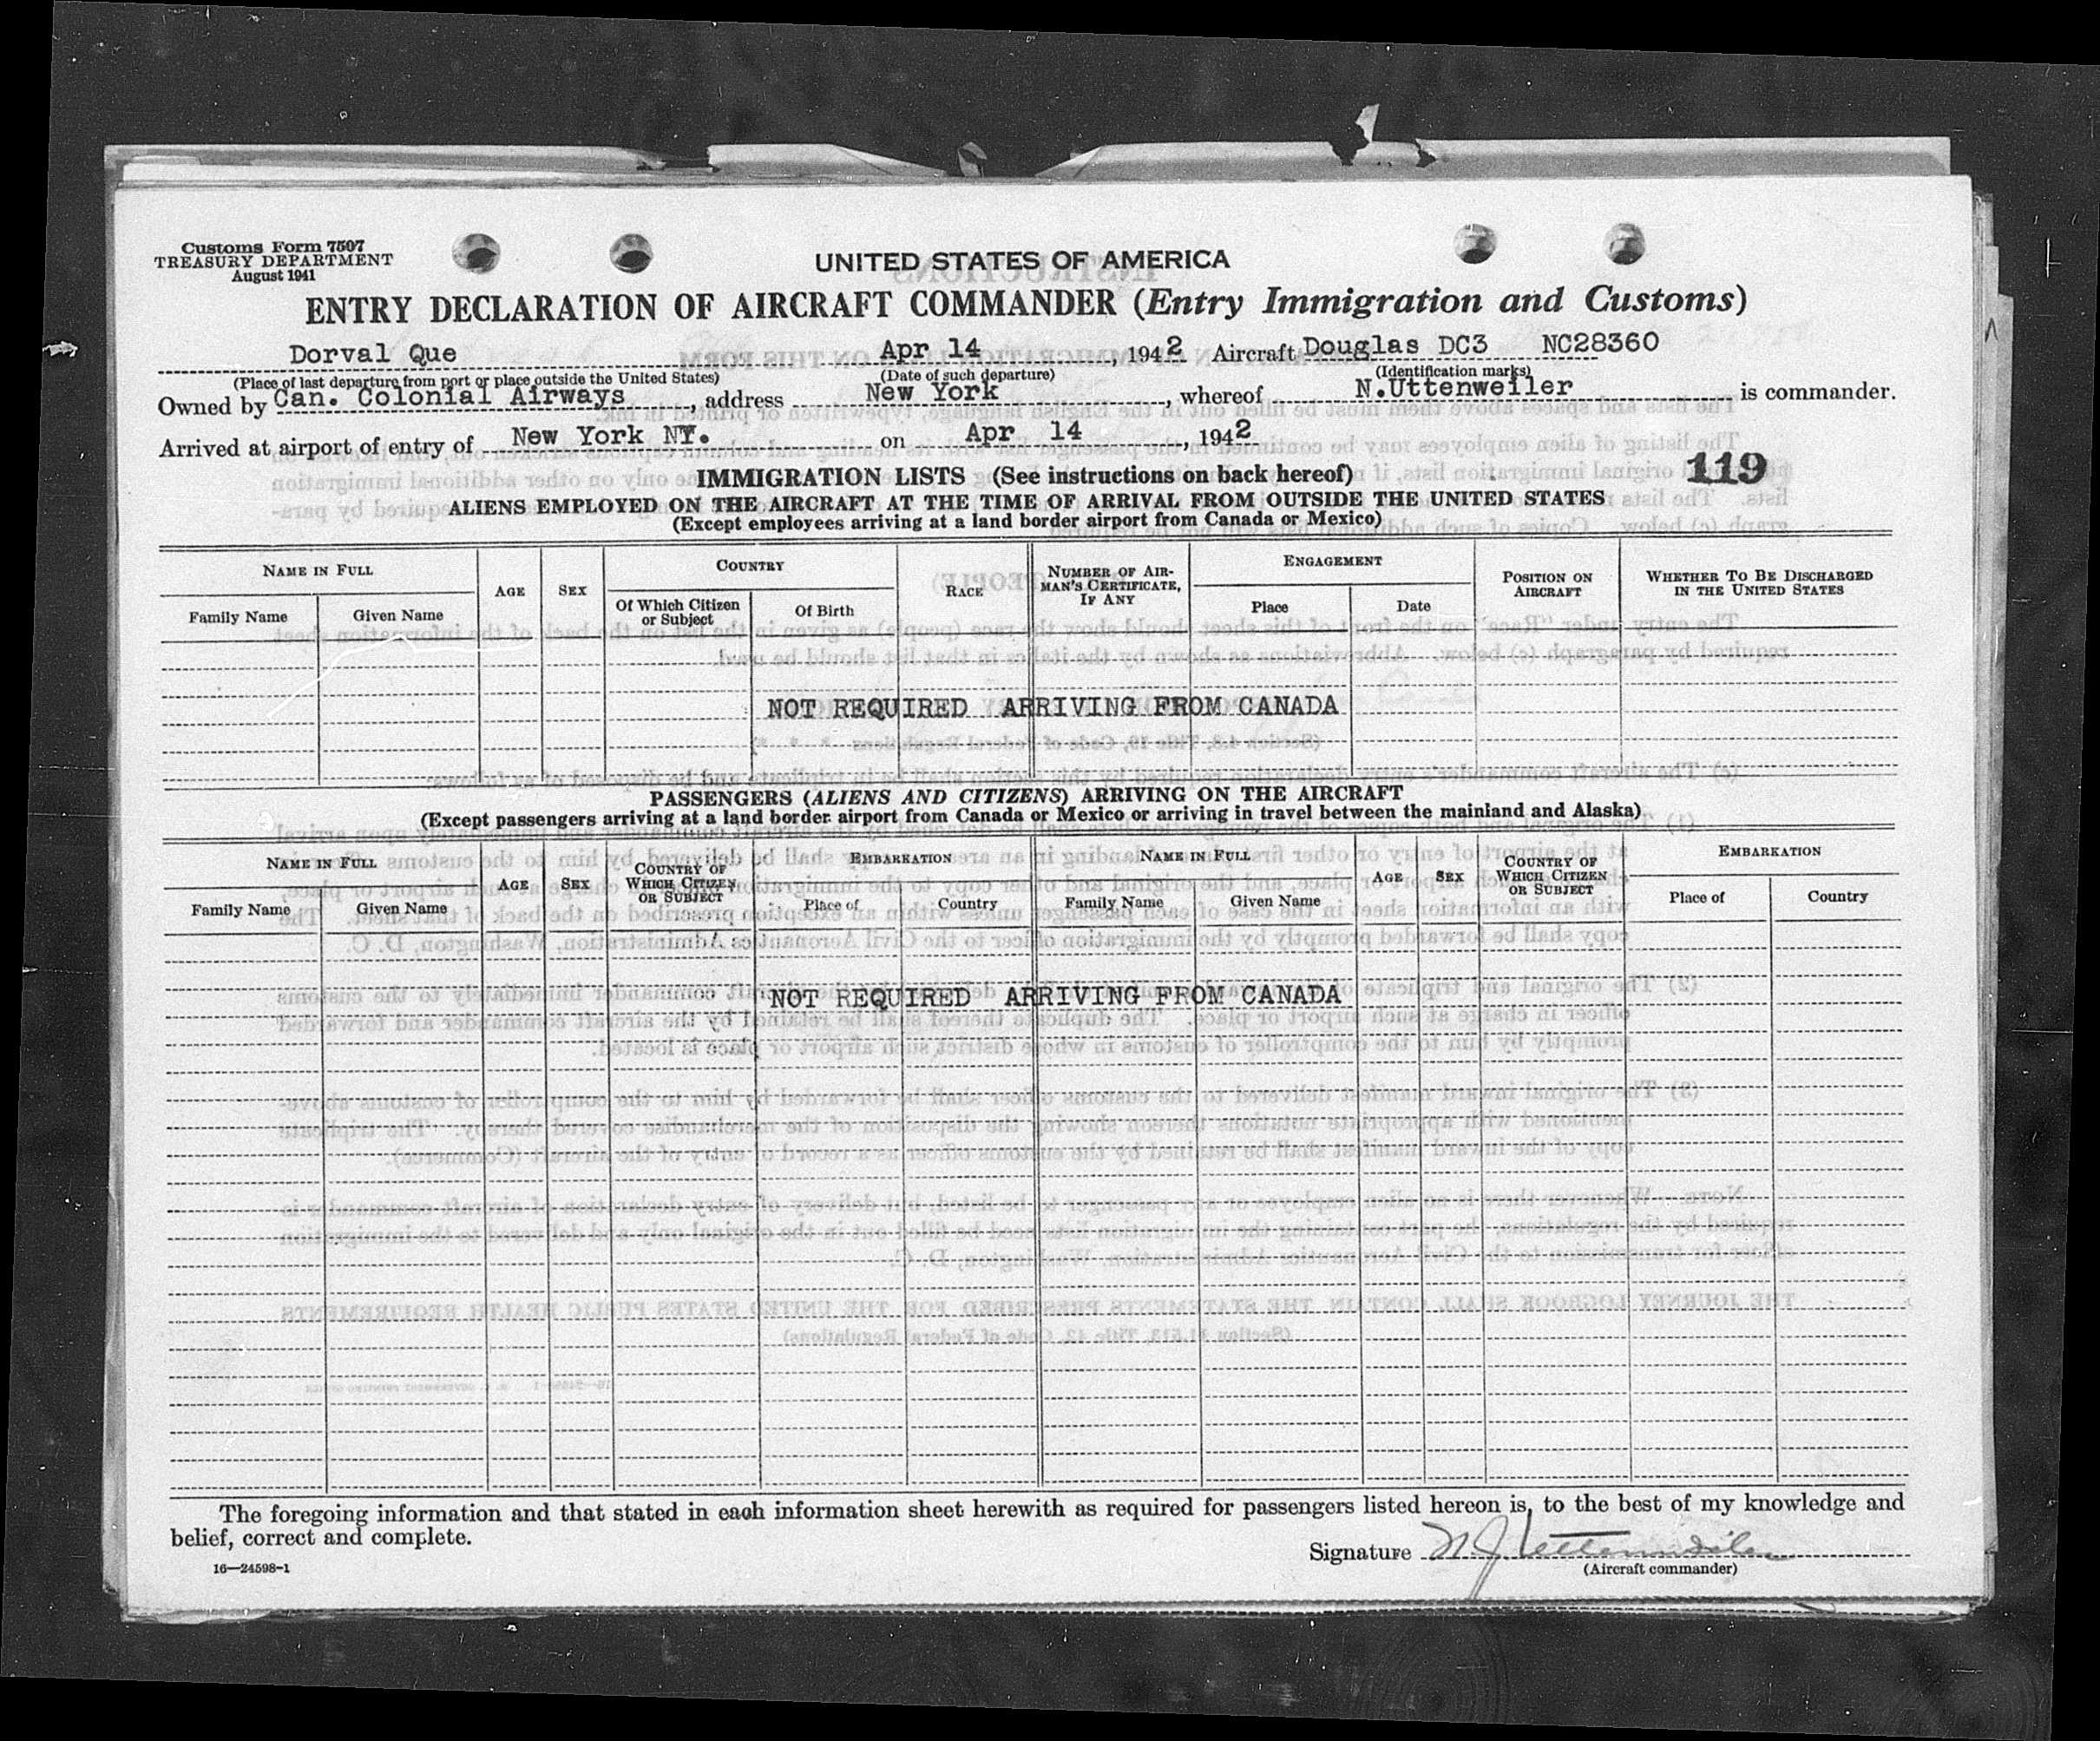 Customs Form 7507
TREASURY DEPARTMENT
August 1941
UNITED STATES OF AMERICA
ENTRY DECLARATION OF AIRCRAFT COMMANDER (Entry Immigration and Customs)
Dorval Que Apr 14, 1942 Aircraft Douglas DC3 NC28360
(Place of last departure from port or place outside the United States) (Date of such departure) (Identification marks)
Owned by Can. Colonial Airways, address New York, whereof N.Uttenweiler is commander.
Arrived at airport of entry of New York NY. on Apr 14, 1942
IMMIGRATION LISTS (See instructions on back hereof)
119
ALIENS EMPLOYED ON THE AIRCRAFT AT THE TIME OF ARRIVAL FROM OUTSIDE THE UNITED STATES
(Except employees arriving at a land border airport from Canada or Mexico)
NAME IN FULL AGE SEX COUNTRY RACE NUMBER OF AIRMAN'S CERTIFICATE, IF ANY ENGAGEMENT POSITION ON AIRCRAFT WHETHER TO BE DISCHARGED IN THE UNITED STATES
Family Name Given Name Of Which Citizen or Subject Of Birth Place Date
NOT REQUIRED ARRIVING FROM CANADA
PASSENGERS (ALIENS AND CITIZENS) ARRIVING ON THE AIRCRAFT
(Except passengers arriving at a land border airport from Canada or Mexico or arriving in travel between the mainland and Alaska)
NAME IN FULL AGE SEX COUNTRY OF WHICH CITIZEN OR SUBJECT EMBARKATION NAME IN FULL AGE SEX COUNTRY OF WHICH CITIZEN OR SUBJECT EMBARKATION
Family Name Given Name Place of Country Family Name Given Name Place of Country
NOT REQUIRED ARRIVING FROM CANADA
The foregoing information and that stated in each information sheet herewith as required for passengers listed hereon is, to the best of my knowledge and
belief, correct and complete.
Signature N J Uttenweiler
(Aircraft commander)
16—24598-1